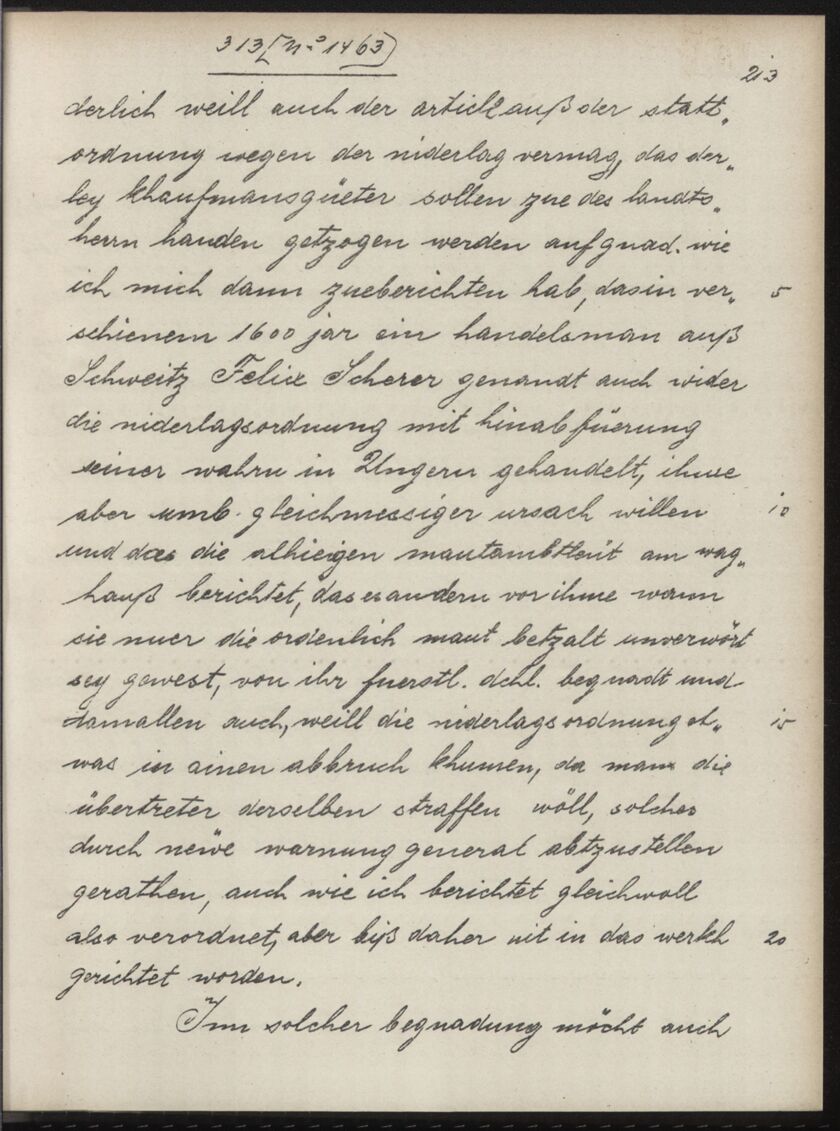 313 [No 1463)
213
derlich weill auch der articl auß der statt„
ordnung wegen der niderlag vermag, das der„
ley khaufmansgüeter sollen zue des landts„
herrn handen getzogen werden auf gnad. wie
ich mich dann zueberichten hab, das in ver„ 5
schienem 1600 jar ein handelsman auß
Schweitz Felix Scherer genandt auch wider
die niderlagsordnung mit hinabfüerung
seiner wahrn in Ungern gehandelt, ihme
aber umb gleichmessiger ursach willen 10
und das die alhieigen mautambtleüt am wag„
hauß berichtet, das es andern vor ihme wann
sie nuer die ordenlich maut betzalt unverwört
sey gewest, von ihr fuerstl. dchl. begnadt und
damallen auch, weill die niderlagsordnung et„ 15
was in ainen abbruch khumen, da man die
übertreter derselben straffen wöll, solches
durch newe warnung general abtzustellen
gerathen, auch wie ich berichtet gleichwoll
also verordnet, aber biß daher nit in das werkh 20
gerichtet worden.
Inn solcher begnadung möcht auch